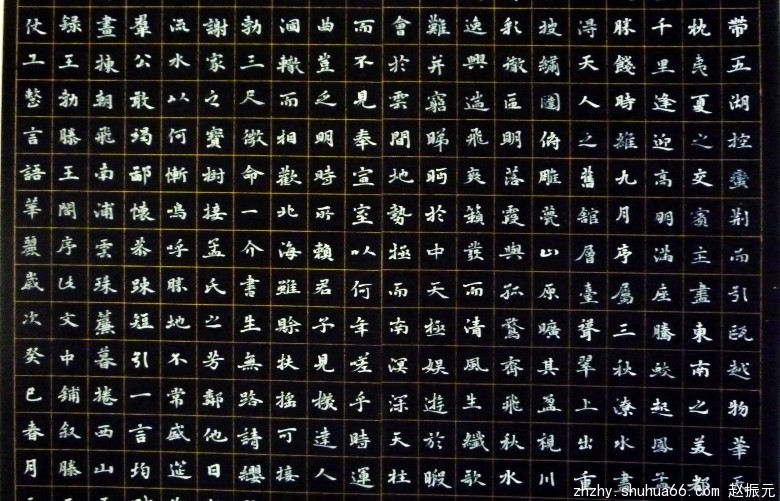 帶五湖控蠻荊而引甌越物華
枕夷夏之交賓主盡東南之美都
千里逢迎高明滿座騰蛟起鳳
勝餞時維九月序屬三秋潦水盡
得天人之舊館層臺聳翠上出重
披繡闥俯雕甍山原曠其盈視川
彩徹區明落霞與孤鶩齊飛秋水
逸興遄飛爽籟發而清風生纖歌
難并窮睇眄於中天極娛遊於暇
會於雲間地勢極而南溟深天柱
而不見奉宣室以何年嗟乎時運
曲豈乏明時所賴君子見機達人
涸轍而相歡北海雖賒扶搖可接
勃三尺微命一介書生無路請纓
謝家之寶樹接孟氏之芳鄰他日
流水以何慚嗚呼勝地不常盛筵
羣公敢竭鄙懷恭疎短引一言均
畫棟朝飛南浦雲珠簾暮捲西山
錄王勃滕王閣序此文中鋪敘滕王
仗工整言語華麗歲次癸巳春月
zhzhy.shuhua66.com 赵振元